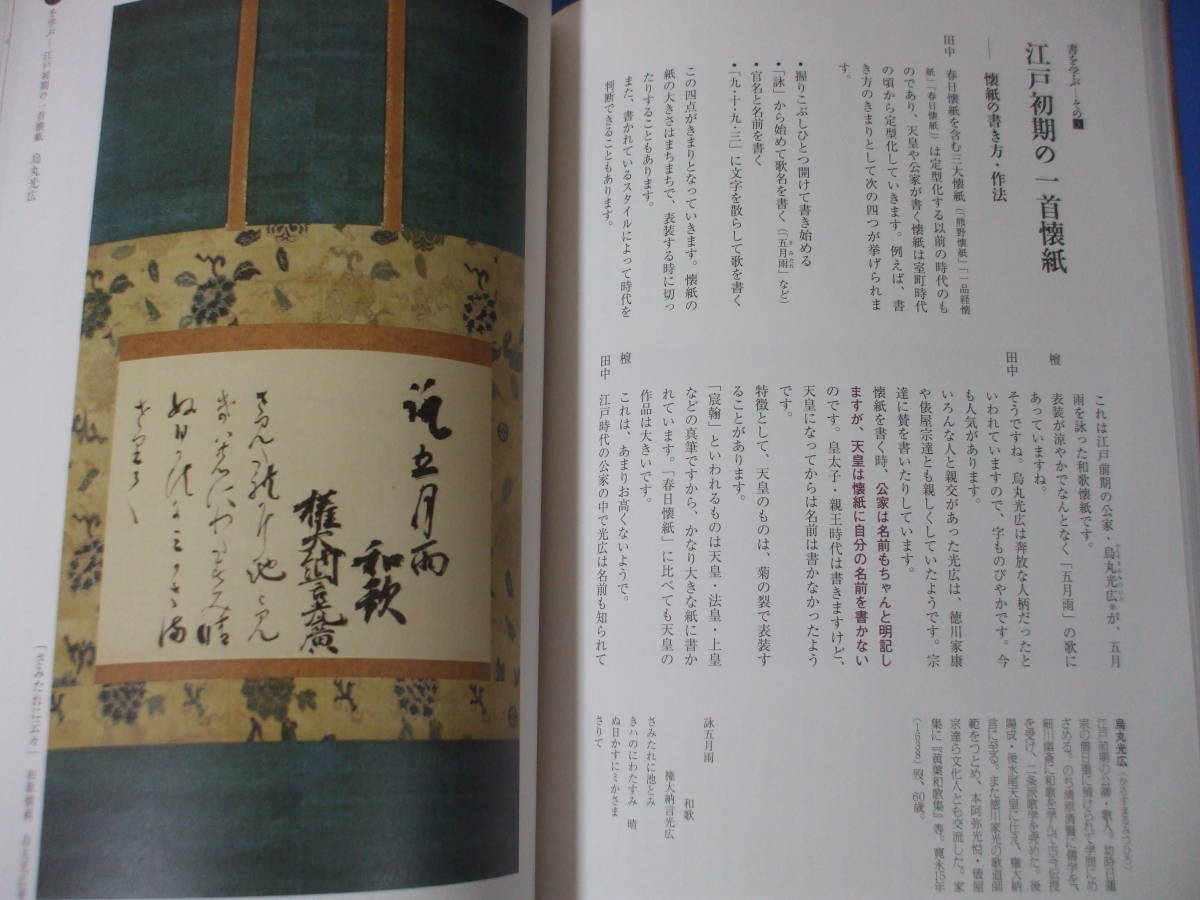 書を学ぶ―その1
江戸初期の一首懐紙
―― 懐紙の書き方・作法
田中 春日懐紙を含む三大懐紙(「熊野懐紙」「一品経懐
紙」「春日懐紙」)は定型化する以前の時代のも
のであり、天皇や公家が書く懐紙は室町時代
の頃から定型化していきます。例えば、書
き方のきまりとして次の四つが挙げられま
す。
・握りこぶしひとつ開けて書き始める
・「詠」から始めて歌名を書く(「五月雨」など)
さみだれ
・官名と名前を書く
・「九・十・九・三」に文字を散らして歌を書く
この四点がきまりとなっていきます。懐紙の
紙の大きさはまちまちで、表装する時に切っ
たりすることもあります。
また、書かれているスタイルによって時代を
判断できることもあります。
檀 これは江戸前期の公家・烏丸光広*が、五月
からすまるみつひろ
雨を詠った和歌懐紙です。
表装が涼やかでなんとなく「五月雨」の歌に
あっていますね。
田中 そうですね。烏丸光広は奔放な人柄だったと
いわれていますので、字ものびやかです。今
も人気があります。
いろんな人と親交があった光広は、徳川家康
や俵屋宗達とも親しくしていたようです。宗
達に賛を書いたりしています。
懐紙を書く時、公家は名前もちゃんと明記し
ますが、天皇は懐紙に自分の名前を書かない
のです。皇太子・親王時代は書きますけど、
天皇になってからは名前は書かなかったよう
です。
特徴として、天皇のものは、菊の裂で表装す
ることがあります。
「宸翰」といわれるものは天皇・法皇・上皇
などの真筆ですから、かなり大きな紙に書か
れています。「春日懐紙」に比べても天皇の
作品は大きいです。
檀 これは、あまりお高くないようで。
田中 江戸時代の公家の中で光広は名前も知られて
烏丸光広(からすまるみつひろ)
江戸初期の公卿・歌人。幼時日蓮
宗の僧日重に預けられて学問にめ
ざめる。のち清原清賢に儒学を、
細川幽斎に和歌を学んで古今伝授
を受け、二条派歌学を究めた。後
陽成・後水尾天皇に仕え、権大納
言に至る。また徳川家光の歌道師
範をつとめ、本阿弥光悦・俵屋
宗達ら文化人とも交流した。家
集に『黄葉和歌集』等。寛永15年
(1638)歿、60歳。
詠五月雨
和歌
権大納言光広
さみたれに池とみ
きハのにわたすみ 晴
ぬ日かすにミかさま
さりて
を学ぶ―江戸初期の一首懐紙 烏丸光広
詠五月雨
和歌
権大納言光廣
「さみたれに云々」 和歌懐紙